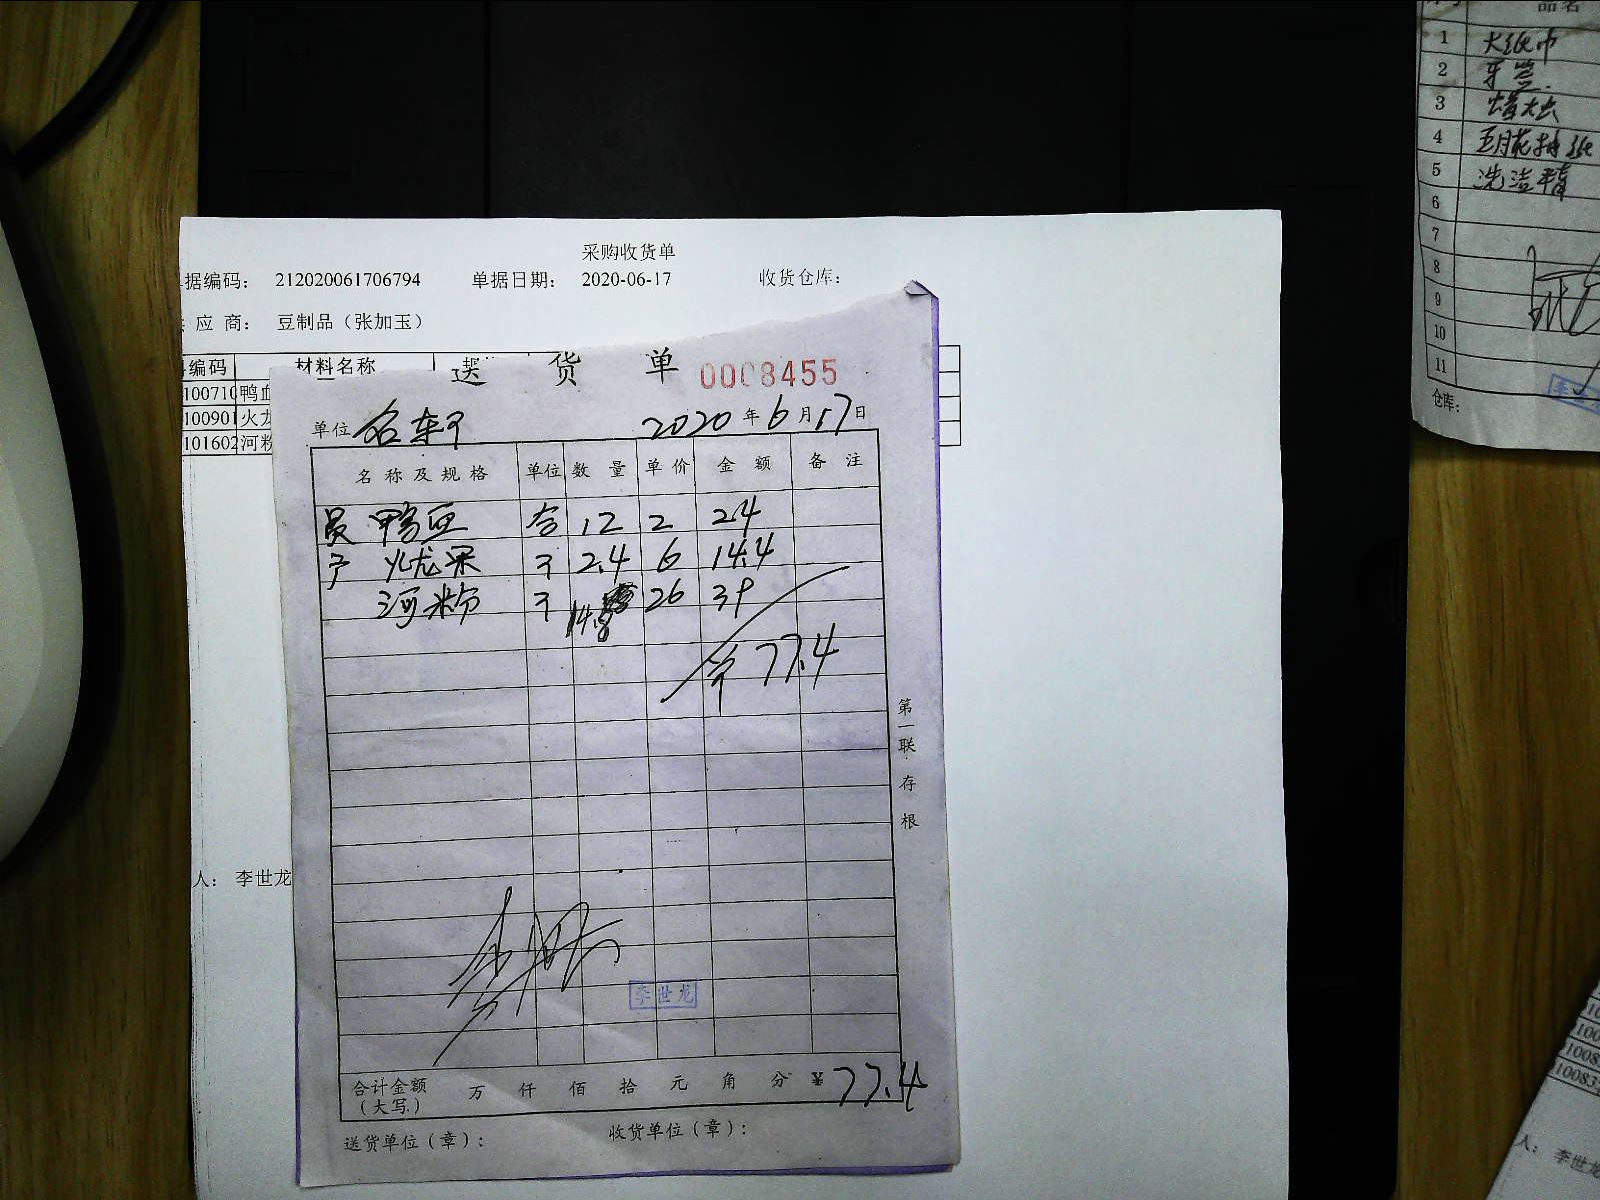 采购收货单
据编码： 212020061706794 单据日期： 2020-06-17 收货仓库：
应 商： 豆制品（张加玉）
编码 材料名称
100710 鸭血
100901 火龙
101602 河粉
人： 李世龙
送 货 单 0008455
单位 2020 年 6 月 17 日
名 称 及 规 格 单位 数 量 单 价 金 额 备 注
员 鸭血 合 12 2 24
子 火龙果 斤 2.4 6 14.4
河粉 斤 26 39
合 77.4
第一联 存根
李世龙
合计金额（大写） 万 仟 佰 拾 元 角 分 ¥ 77.4
送货单位（章）： 收货单位（章）：
品名
1 大纸巾
2 牙签
3
4 五月花抽纸
5 洗洁精
6
7
8
9
10
11
仓库：
100
1008
10083
人： 李世龙